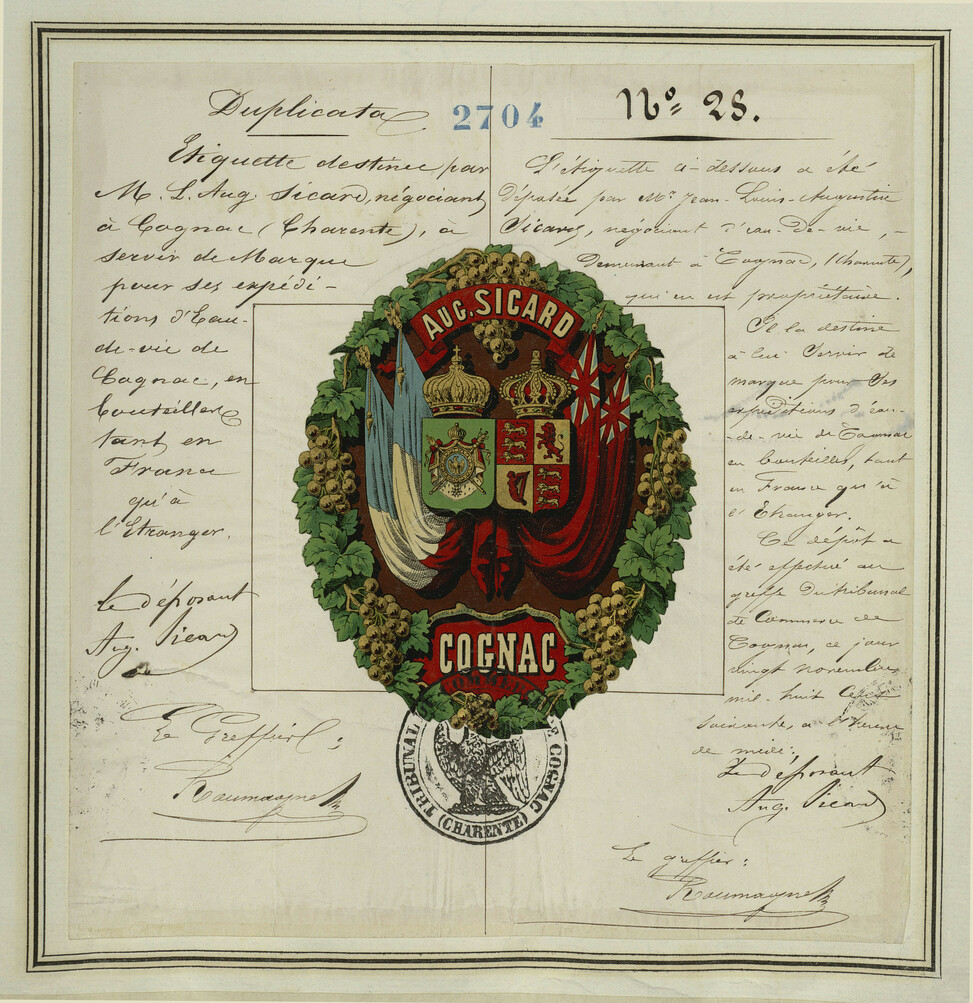 Duplicata
2704
Nº= 28.
Etiquette destinée par
M. L. Aug Sicard, négociant
à Cognac (Charente), à
servir de Marque
pour ses expédi-
tions d'Eau-
de-vie de
Cognac, en
bouteilles
tant en
France
qu'à
l'Etranger.
Le déposant
Aug. Sicard
Le Greffier :
Roumagne
L'étiquette ci-dessous a été
déposée par Mr. Jean-Louis-Augustin
Sicard, négociant d'eau-de-vie, -
Demeurant à Cognac, (Charente),
qui en est propriétaire.
Il la destine
à lui servir de
marque pour ses
expéditions d'eau-
-de-vie de Cognac
en bouteilles, tant
en France qu'à
l'Etranger.
Ce dépôt a
été effectué au
greffe du tribunal
de Commerce de
Cognac, ce jour
vingt novembre
mil-huit cent
soixante, à l'heure
de midi :
Le déposant
Aug. Sicard
Le greffier :
Roumagne
AUG. SICARD
COGNAC
TRIBUNAL COMMERCE COGNAC
(CHARENTE)